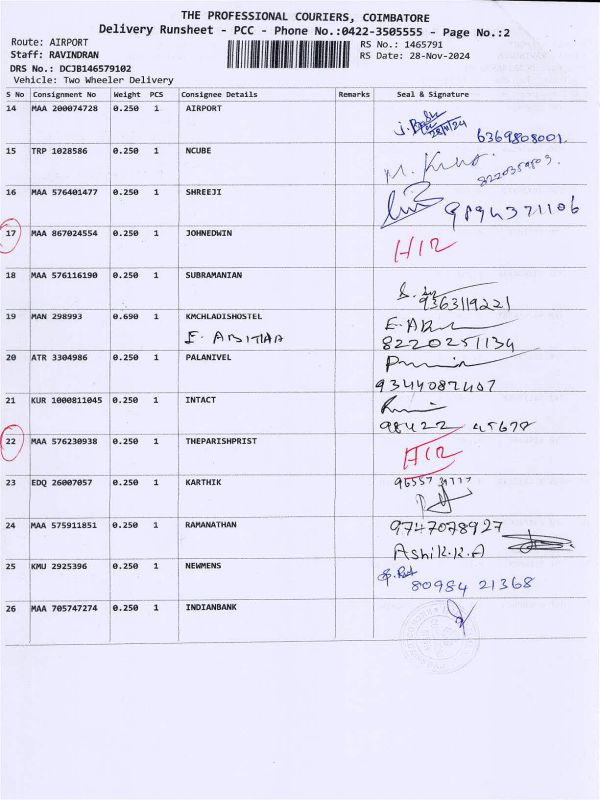 THE PROFESSIONAL COURIERS, COIMBATORE
Delivery Runsheet - PCC - Phone No.:0422-3505555 - Page No.:2
Route: AIRPORT RS No.: 1465791
Staff: RAVINDRAN RS Date: 28-Nov-2024
DRS No.: DCJB146579102
Vehicle: Two Wheeler Delivery
S No Consignment No Weight PCS Consignee Details Remarks Seal & Signature
14 MAA 200074728 0.250 1 AIRPORT
28/11/24 6369808001.
15 TRP 1028586 0.250 1 NCUBE
16 MAA 576401477 0.250 1 SHREEJI
9894371106
17 MAA 867024554 0.250 1 JOHNEDWIN
HIR
18 MAA 576116190 0.250 1 SUBRAMANIAN
9363119221
19 MAN 298993 0.690 1 KMCHLADISHOSTEL
8220251134
20 ATR 3304986 0.250 1 PALANIVEL
9344087407
21 KUR 1000811045 0.250 1 INTACT
98422 45678
22 MAA 576230938 0.250 1 THEPARISHPRIST
HIR
23 EDQ 26007057 0.250 1 KARTHIK
24 MAA 575911851 0.250 1 RAMANATHAN
9747078927
Ashik.K.A
25 KMU 2925396 0.250 1 NEWMENS
80984 21368
26 MAA 705747274 0.250 1 INDIANBANK